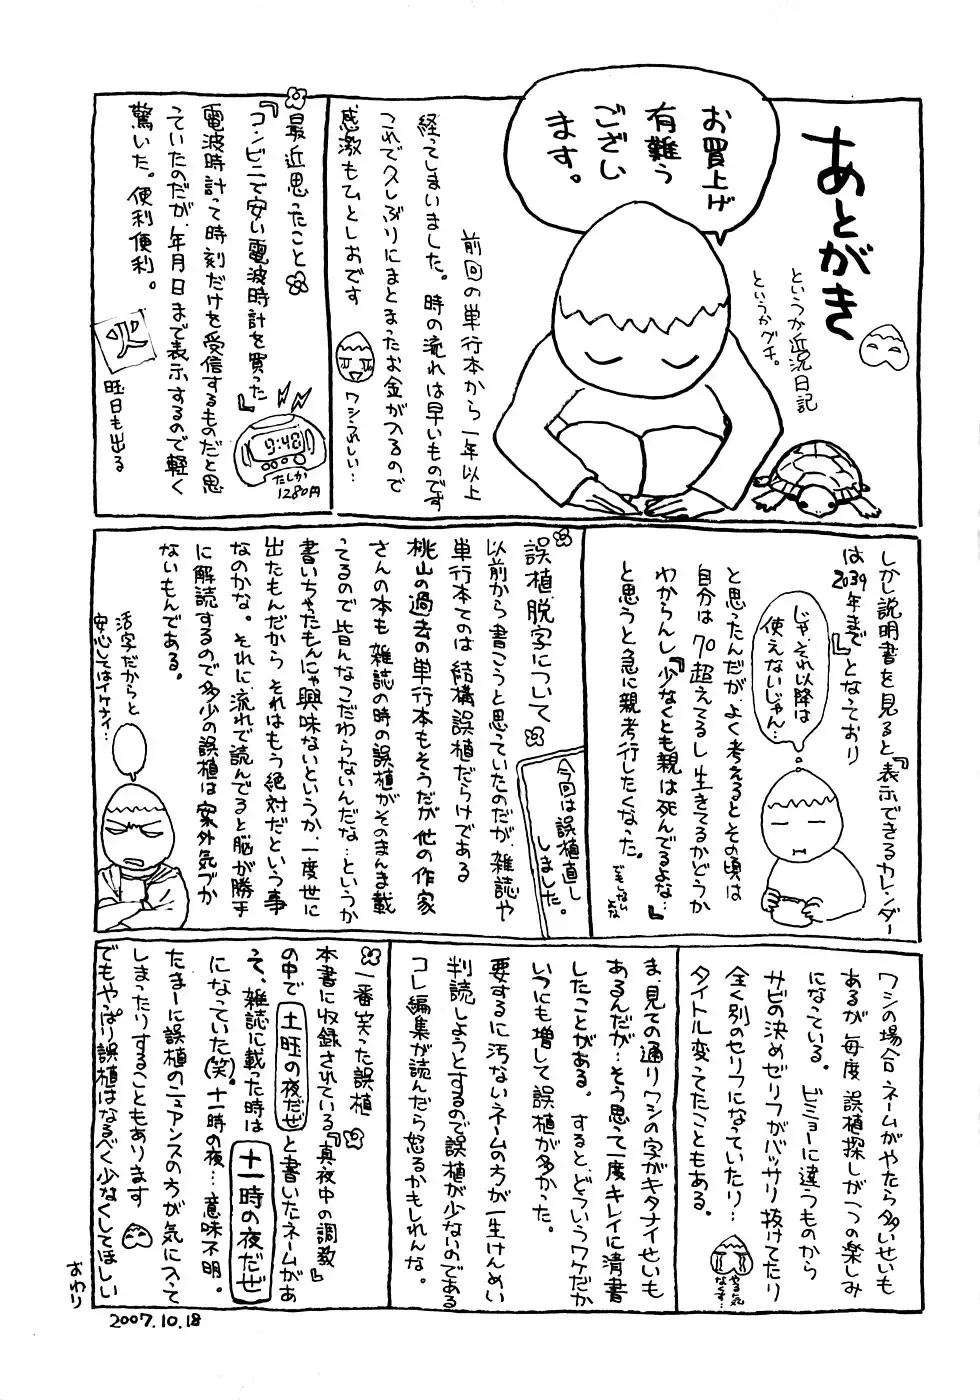 あとがき
というか近況日記
というかグチ。
お買上げ
有難う
ござい
ます。
前回の単行本から一年以上
経ってしまいました。時の流れは早いものです
これで久しぶりにまとまったお金が入るので
感激もひとしおです
ワシうれしい…
最近思ったこと
『コンビニで安い電波時計を買った』
電波時計って時刻だけを受信するものだと思
っていたのだが、年月日まで表示するので軽く
驚いた。便利便利。
たしか
1280円
火
曜日も出る
しかし説明書を見ると『表示できるカレンダー
は2039年まで』となっており
じゃ、それ以降は
使えないじゃん…
と思ったんだが、よく考えるとその頃は
自分は70超えてるし生きてるかどうか
わからんし『少なくとも親は死んでるよな…』
と思うと急に親孝行したくなった。
誤植脱字について
今回は誤植直し
しました。
以前から書こうと思っていたのだが、雑誌や
単行本てのは結構誤植だらけである
桃山の過去の単行本もそうだが他の作家
さんの本も雑誌の時の誤植がそのまんま載
ってるので皆んなこだわらないんだな…というか
書いちゃったもんにゃ興味ないというか、一度世に
出たもんだから それはもう絶対だという事
なのかな。それに流れで読んでると脳が勝手
に解読するので多少の誤植は案外気づか
ないもんである。
活字だからと
安心してはイケナイ…
ワシの場合ネームがやたら多いせいも
あるが毎度誤植探しが一つの楽しみ
になっている。ビミョーに違うものから
サビの決めゼリフがバッサリ抜けてたり
全く別のセリフになっていたり…
タイトル変ってたこともある。
やる気
なくす…
ま、見ての通りワシの字がキタナイせいも
あるんだが…そう思って一度キレイに清書
したことがある。すると、どういうワケだか
いつにも増して誤植が多かった。
要するに汚ないネームの方が一生けんめい
判読しようとするので誤植が少ないのである
コレ編集が読んだら怒るかもしれんな。
一番笑った誤植
本書に収録されている『真夜中の調教』
の中で 土曜の夜だぜ と書いたネームがあ
って、雑誌に載った時は 十一時の夜だぜ
になっていた(笑)。十一時の夜…意味不明。
たまーに誤植のニュアンスの方が気に入って
しまったりすることもあります
でもやっぱり誤植はなるべく少なくしてほしい
おわり
2007.10.18